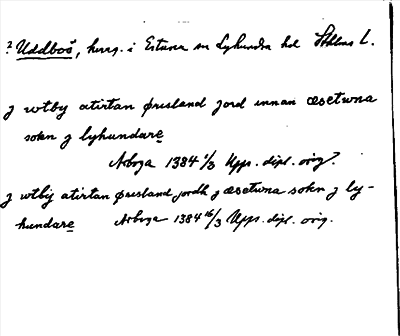 ? Uddboö, herrg. i Estuna sn Lyhundra hd Sthlms L.
j wtby atirtan øresland jord innan æsetwna
sokn j lyhundare
Arboga 1384 1/3 Upps. dipl. orig?.
j wtby atirtan øresland jordh j æsetwna sokn j ly-
hundare Arboga 1384 16/3 Upps. dipl. orig.